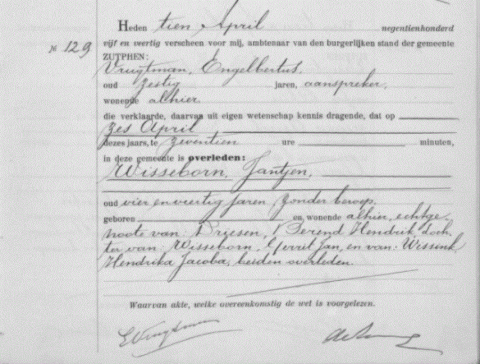 Heden tien April negentienhonderd
No 129 vijf en veertig verscheen voor mij, ambtenaar van den burgerlijken stand der gemeente
ZUTPHEN:
Vrugtman, Engelbertus,
oud zestig jaren, aanspreker,
wonende alhier
die verklaarde, daarvan uit eigen wetenschap kennis dragende, dat op
zes April
dezes jaars, te zeventien ure minuten,
in deze gemeente is overleden:
Wisseborn, Jantjen,
oud vier en veertig jaren, zonder beroep,
geboren en wonende alhier, echtge-
noote van Driesen, Berend Hendrik, doch-
ter van Wisseborn, Gerrit Jan, en van Wissink
Hendrika Jacoba, beiden overleden.
Waarvan akte, welke overeenkomstig de wet is voorgelezen.
EVrugtman